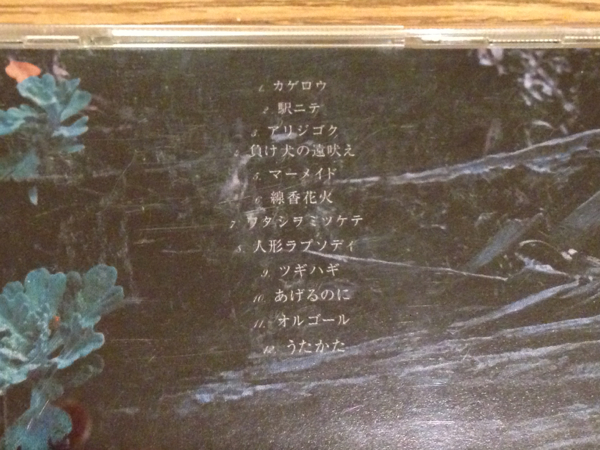 1. カゲロウ
2. 駅ニテ
3. アリジゴク
4. 負け犬の遠吠え
5. マーメイド
6. 線香花火
7. ワタシヲミツケテ
8. 人形ラプソディ
9. ツギハギ
10. あげるのに
11. オルゴール
12. うたかた